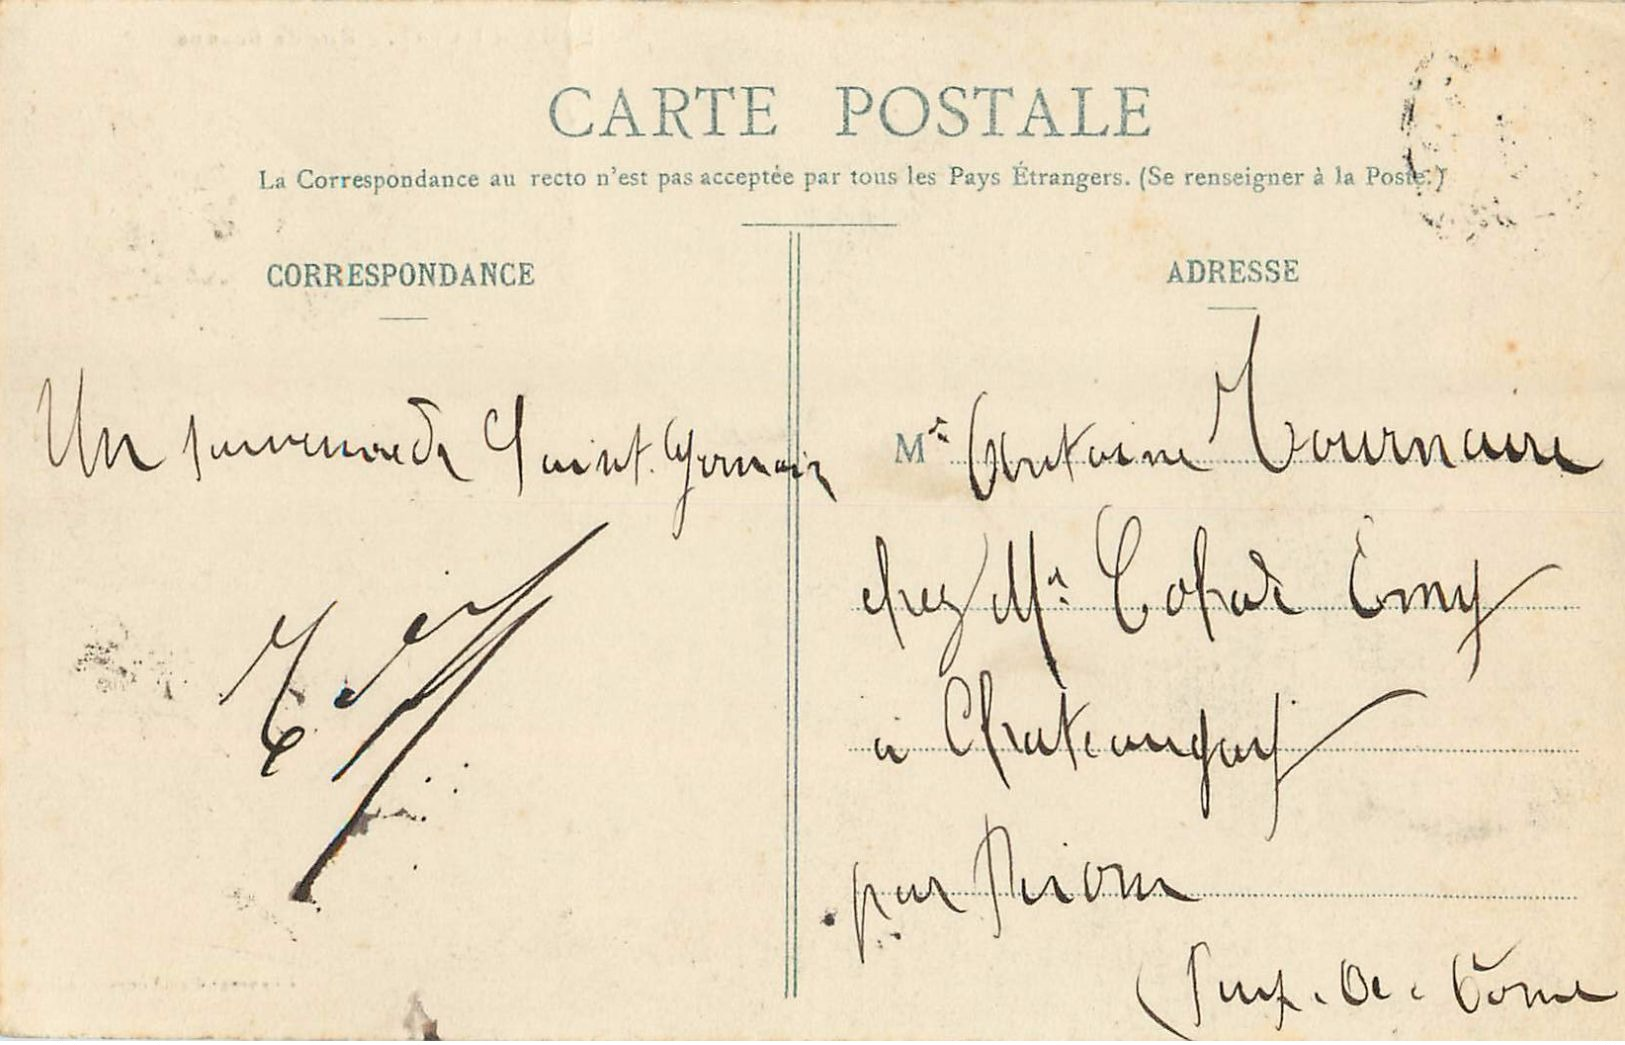 CARTE POSTALE
La Correspondance au recto n'est pas acceptée par tous les Pays Étrangers. (Se renseigner à la Poste.)
CORRESPONDANCE
Un souvenir de Saint. Germain
ADRESSE
Mr Antoine Tournaire
chez Mr
à Chateaugay
par Riom
(Puy-de-Dome